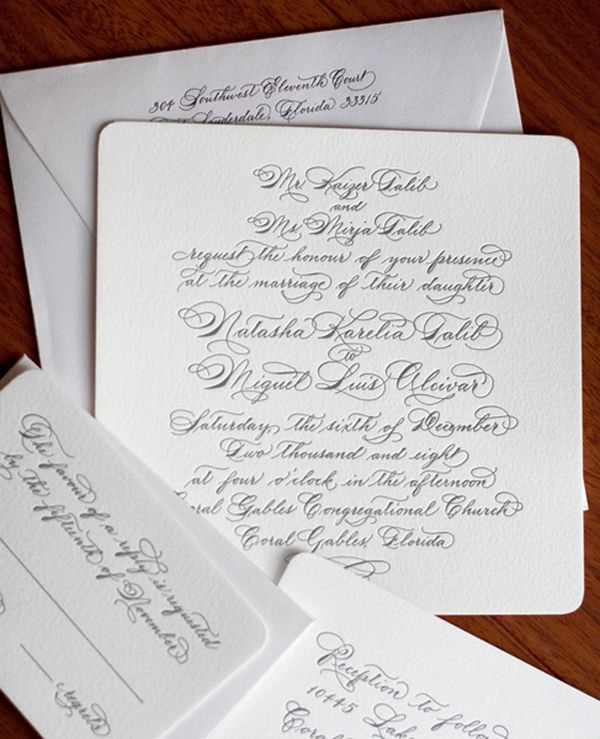 304 Southwest Eleventh Court
Lauderdale, Florida 33315
Mr. Kaizer Talib
and
Ms. Mirja Talib
request the honour of your presence
at the marriage of their daughter
Natasha Karelia Talib
to
Miguel Luis Alcivar
Saturday, the sixth of December
Two thousand and eight
at four o'clock in the afternoon
Coral Gables Congregational Church
Coral Gables, Florida
The favour of a reply is requested
by the fifteenth of November
regrets
Reception to follow
10445